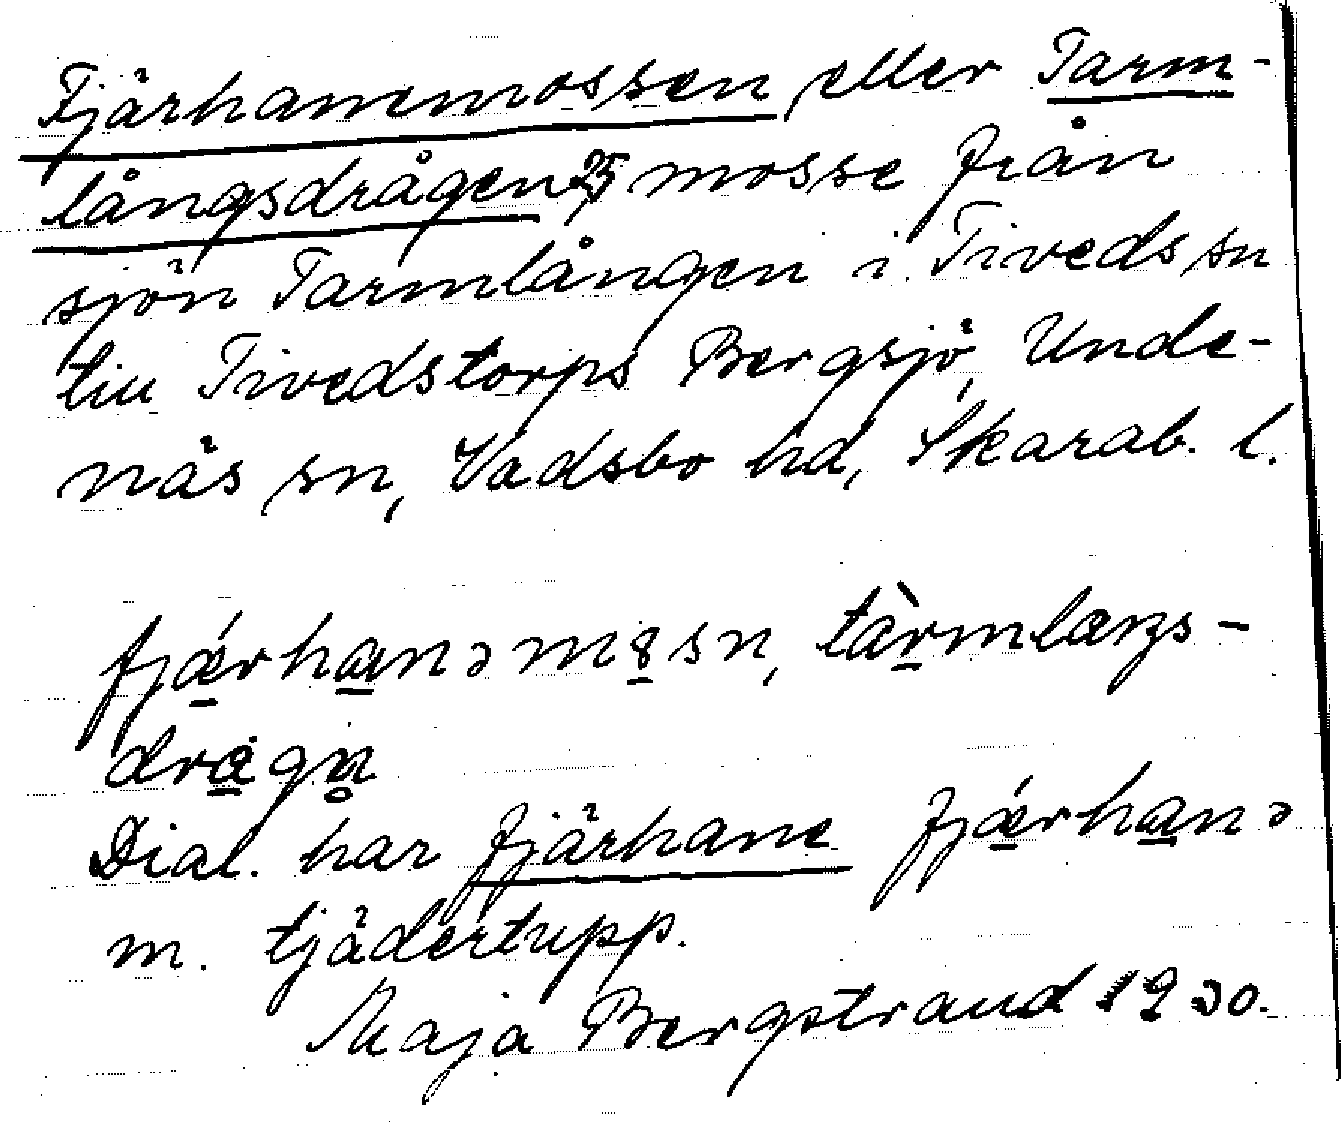 Fjärhanemossen eller Tarm-
långsdrågen 25 mosse från
sjön Tarmlången i Tiveds sn
till Tivedstorps Bergsjö, Unde-
näs sn, Vadsbo hd, Skarab. l.
fjǽrhanəm8sn, tàrmlæŋs-
drågα̊
Dial. har fjärhane fjǽrhanə
m. tjädertupp.
Maja Bergstrand 1930.